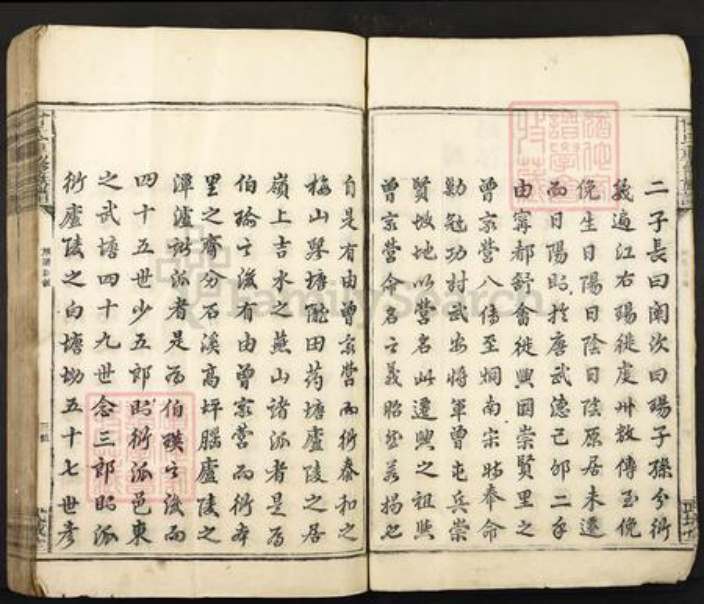 二子長曰闡次曰瑒子孫分衍
幾遍江右瑒徙虔州數傳至俛
俛生日陽日陰日陰原居未遷
而日陽於唐武德己卯二年
由寧都舒畬徙興國崇賢里之
曾家營八傳至炯南宋時奉命
勦冦功封武安將軍曾屯兵崇
賢故地以營名此遷興之祖與
曾家營命名之義昭然若揭也
自是有由曾家營而衍泰和之
梅山學塘龍田药塘廬陵之居
嶺上吉水之燕山諸派者是為
伯瑜之後有由曾家營而衍本
里之齋分石溪高坪腦廬陵之
潭瀘諸派者是為伯瑛之後而
四十五世少五郎則衍派邑東
之武塘四十九世念三郎則派
衍廬陵之白塘坳五十七世彥
FamilySearch